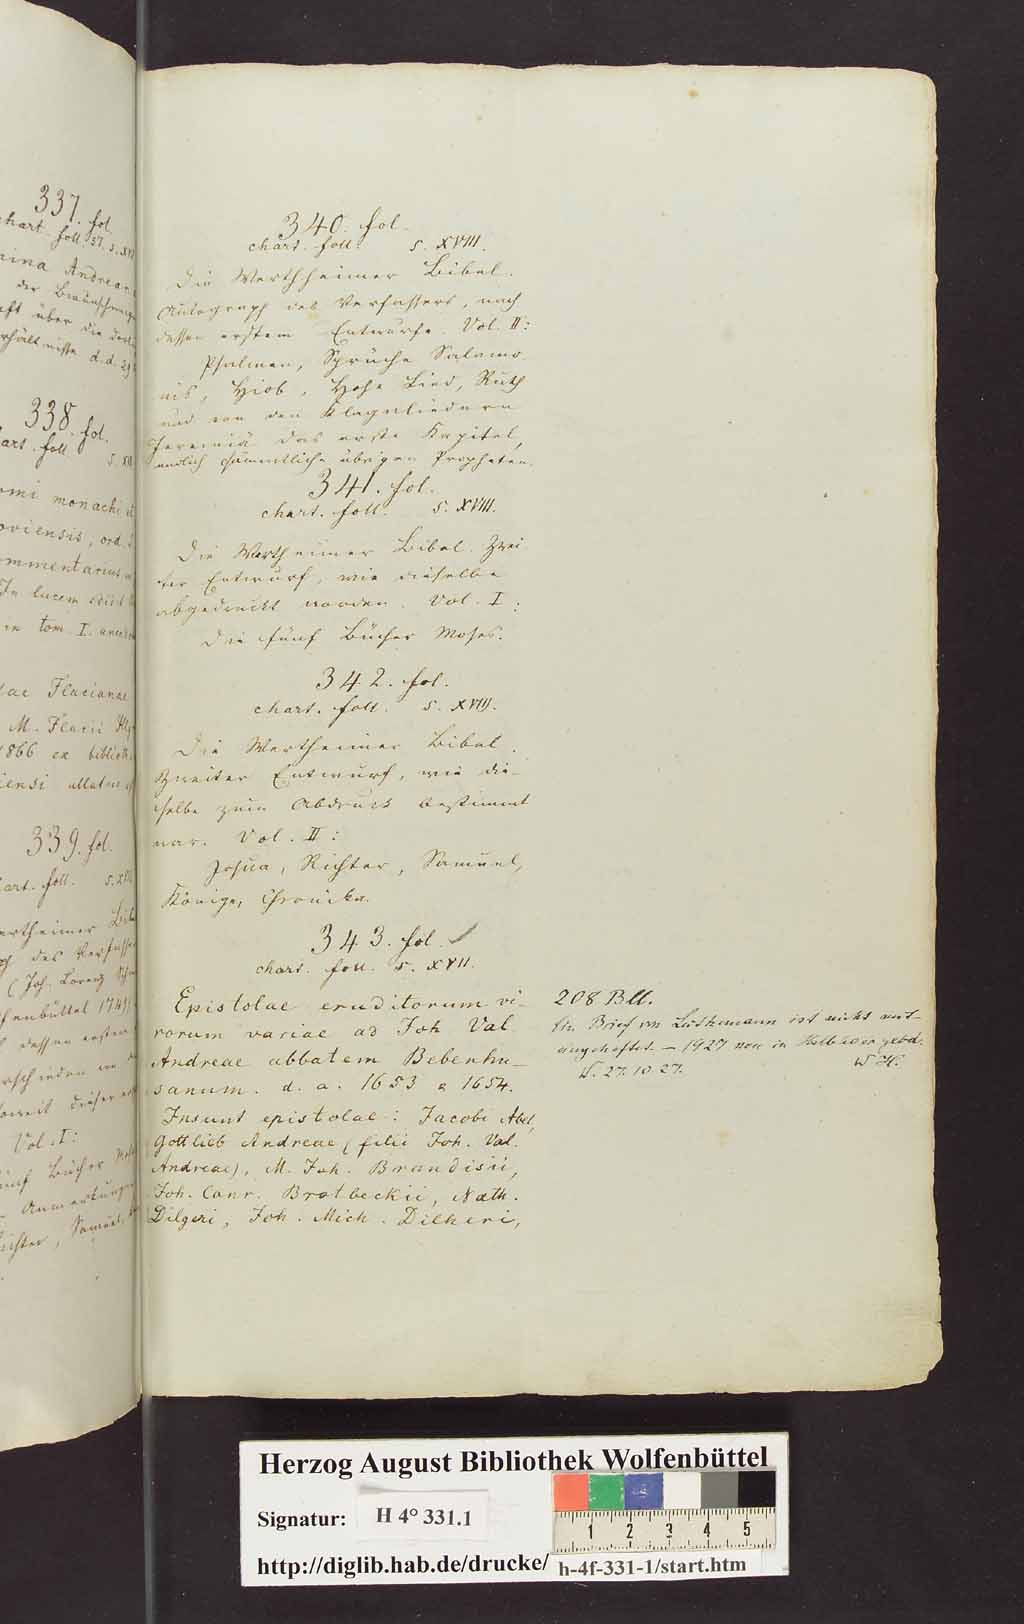 337. fol.
chart. foll. 37. s. XV
Andreana
der Braunschweig
über die
d.d. 29
338. fol.
foll. s. XV
monachi
oviensis, ord.
commentarius
In lucem edidit
in tom. I. anecd
Flacianae
M. Flacii Illy
1866 ex biblioth
iensi allatus
339. fol.
chart. foll. s. XVIII
Wertheimer Bibel
des Verfassers
(Joh. Lorenz Schm
Wolfenbüttel 1749)
dessen ersten
Vol. I:
fünf Bücher Mosis
Anmerkungen
Richter, Samuel,
340. fol.
chart. foll. s. XVIII.
Die Werthheimer Bibel.
Autograph des Verfassers, nach
dessen erstem Entwurfe. Vol. II:
Psalmen, Sprüche Salomo
nis, Hiob, Hohe Lied, Ruth
und von den Klageliedern
Jeremiä das erste Kapitel,
endlich sämmtliche übrigen Propheten.
341. fol.
chart. foll. s. XVIII.
Die Wertheimer Bibel. Zwei
ter Entwurf, wie dieselbe
abgedruckt worden. Vol. I:
Die fünf Bücher Moses.
342. fol.
chart. foll. s. XVIII.
Die Wertheimer Bibel.
Zweiter Entwurf, wie die-
selbe zum Abdruck bestimmt
war. Vol. II:
Josua, Richter, Samuel,
Könige, Chronika.
343. fol.
chart. foll. s. XVII.
Epistolae eruditorum vi-
rorum variae ad Joh. Val.
Andreae abbatem Bebenhu-
sanum. d. a. 1653 & 1654.
Insunt epistolae: Jacobi Abel,
Gottlieb Andreae (filii Joh. Val.
Andreae), M. Joh. Brandisii,
Joh. Conr. Brotbeckii, Nath.
Dilgeri, Joh. Mich. Dilheri,
208 Bll.
Ein Brief von Luthmann ist nicht mit-
eingeheftet. – 1927 neu in Halbleder gebd.
W. 27.10.27. W H.
Herzog August Bibliothek Wolfenbüttel
Signatur: H 4° 331.1
1 2 3 4 5
http://diglib.hab.de/drucke/ h-4f-331-1/start.htm